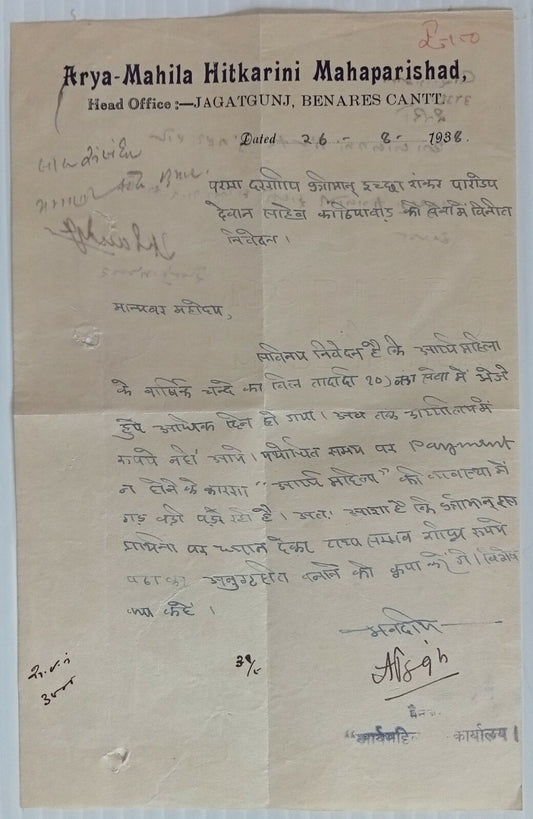 Arya-Mahila Hitkarini Mahaparishad,
Head Office :—JAGATGUNJ, BENARES CANTT.
Dated 26 - 8 - 1938.
परम दरणीय श्रीमान् इच्छा शंकर पाण्डेय
देवान साहेब काठियावाड़ की सेवा में विनीत
निवेदन ।
मान्यवर महोदय,
सविनय निवेदन है कि आर्य महिला
के वार्षिक चन्दे का बिल तादादी १०) का सेवा में भेजे
हुये अधिक दिन हो गया । अब तक कार्यालय में
रुपये नहीं आये । यथोचित समय पर Payment
न होने के कारण "आर्य महिला" की व्यवस्था में
गड़बड़ी पड़ रही है । अतः आशा है कि श्रीमान् इस
प्रार्थना पर ध्यान देकर यथा सम्भव शीघ्र रुपये
अनुग्रहीत बनाने की कृपा करेंगे । विशेष
क्या कहें ।
भवदीय
"आर्यमहि कार्यालय ।